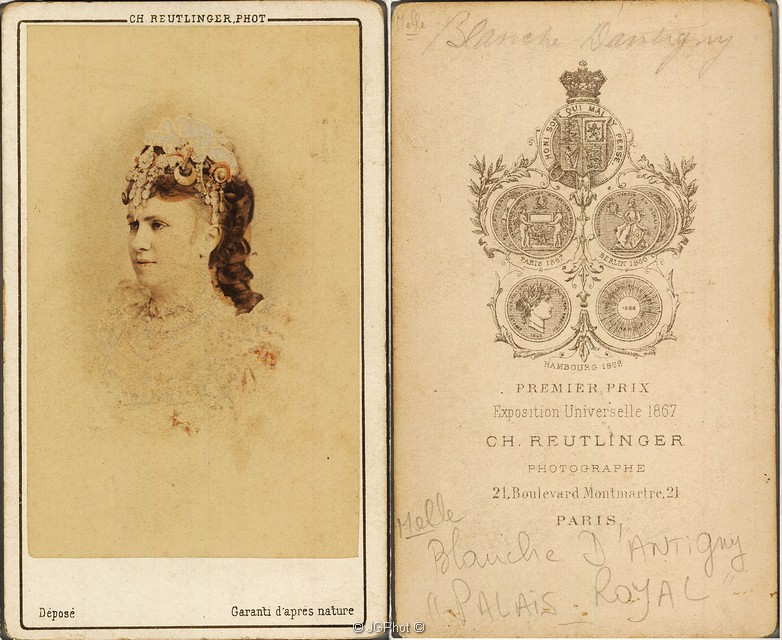 CH. REUTLINGER, PHOT
Déposé
Garanti d'après nature
Melle
Blanche Dantigny
HONI SOIT QUI MAL Y PENSE
PARIS 1867
BERLIN 1866
HAMBOURG 1868
PREMIER PRIX
Exposition Universelle 1867
CH. REUTLINGER
PHOTOGRAPHE
21, Boulevard Montmartre, 21
PARIS,
Melle
Blanche D'ANTIGNY
"PALAIS ROYAL"
© JGPhot ©